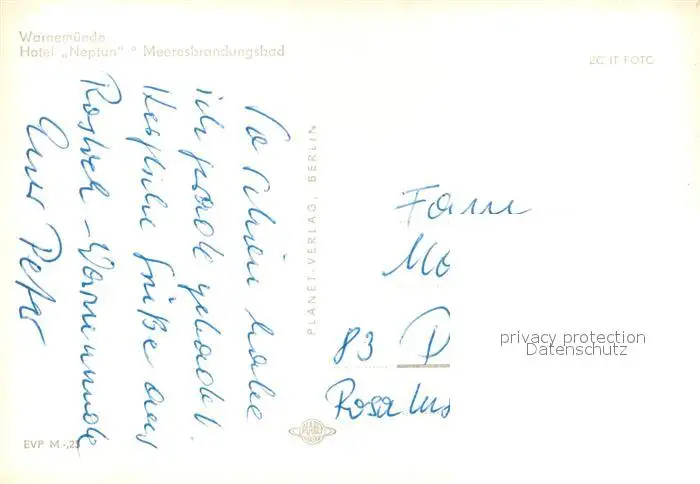 Warnemünde
Hotel „Neptun" * Meeresbrandungsbad
EC IT FOTO
Da drin habe
ich gerade gebadet.
Herzliche Grüße aus
Rostock-Warnemünde
Euer Peter
PLANET-VERLAG, BERLIN
Fam
Mo
83 D
Rosa Lux
privacy protection
Datenschutz
PLANET
EVP M -,25